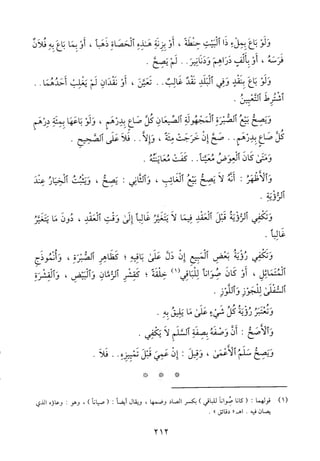 وَلَوْ بَاعَ بِمِلْءِ ذَا ٱلْبَيْتِ حِنْطَةً ، أَوْ بِزِنَةِ هَـٰذِهِ ٱلْحَصَاةِ ذَهَباً ، أَوْ بِمَا بَاعَ بِهِ فُلَانٌ
فَرَسَهُ ، أَوْ بِأَلْفٍ دَرَاهِمَ وَدَنَانِيرَ.. لَمْ يَصِحَّ .
وَلَوْ بَاعَ بِنَقْدٍ وَفِي ٱلْبَلَدِ نَقْدٌ غَالِبٌ.. تَعَيَّنَ ، أَوْ نَقْدَانِ لَمْ يَغْلِبْ أَحَدُهُمَا..
ٱشْتُرِطَ ٱلتَّعْيِينُ .
وَيَصِحُّ بَيْعُ ٱلصُّبْرَةِ ٱلْمَجْهُولَةِ ٱلصِّيعَانِ كُلَّ صَاعٍ بِدِرْهَمٍ ، وَلَوْ بَاعَهَا بِمِئَةِ دِرْهَمٍ
كُلَّ صَاعٍ بِدِرْهَمٍ.. صَحَّ إِنْ خَرَجَتْ مِئَةً ، وَإِلَّا.. فَلَا عَلَى ٱلصَّحِيحِ .
وَمَتَىٰ كَانَ ٱلْعِوَضُ مُعَيَّناً.. كَفَتْ مُعَايَنَتُهُ .
وَٱلْأَظْهَرُ : أَنَّهُ لَا يَصِحُّ بَيْعُ ٱلْغَائِبِ ، وَٱلثَّانِي : يَصِحُّ ، وَيَثْبُتُ ٱلْخِيَارُ عِنْدَ
ٱلرُّؤْيَةِ .
وَتَكْفِي ٱلرُّؤْيَةُ قَبْلَ ٱلْعَقْدِ فِيمَا لَا يَتَغَيَّرُ غَالِباً إِلَىٰ وَقْتِ ٱلْعَقْدِ ، دُونَ مَا يَتَغَيَّرُ
غَالِباً .
وَتَكْفِي رُؤْيَةُ بَعْضِ ٱلْمَبِيعِ إِنْ دَلَّ عَلَىٰ بَاقِيهِ ؛ كَظَاهِرِ ٱلصُّبْرَةِ ، وَأُنْمُوذَجِ
ٱلْمُتَمَاثِلِ ، أَوْ كَانَ صُِوَاناً لِلْبَاقِي (١) خِلْقَةً ؛ كَقِشْرِ ٱلرُّمَّانِ وَٱلْبَيْضِ ، وَٱلْقِشْرَةِ
ٱلسُّفْلَىٰ لِلْجَوْزِ وَٱللَّوْزِ .
وَتُعْتَبَرُ رُؤْيَةُ كُلِّ شَيْءٍ عَلَىٰ مَا يَلِيقُ بِهِ .
وَٱلْأَصَحُّ : أَنَّ وَصْفَهُ بِصِفَةِ ٱلسَّلَمِ لَا يَكْفِي .
وَيَصِحُّ سَلَمُ ٱلْأَعْمَىٰ ، وَقِيلَ : إِنْ عَمِيَ قَبْلَ تَمْيِيزِهِ.. فَلَا .
* * *
(١) قولهما : ( كانا صُِواناً للباقي ) بكسر الصاد وضمها ، ويقال أيضاً : ( صياناً ) ، وهو : وعاؤه الذي
يصان فيه . اهـ « دقائق » .
٢١٢